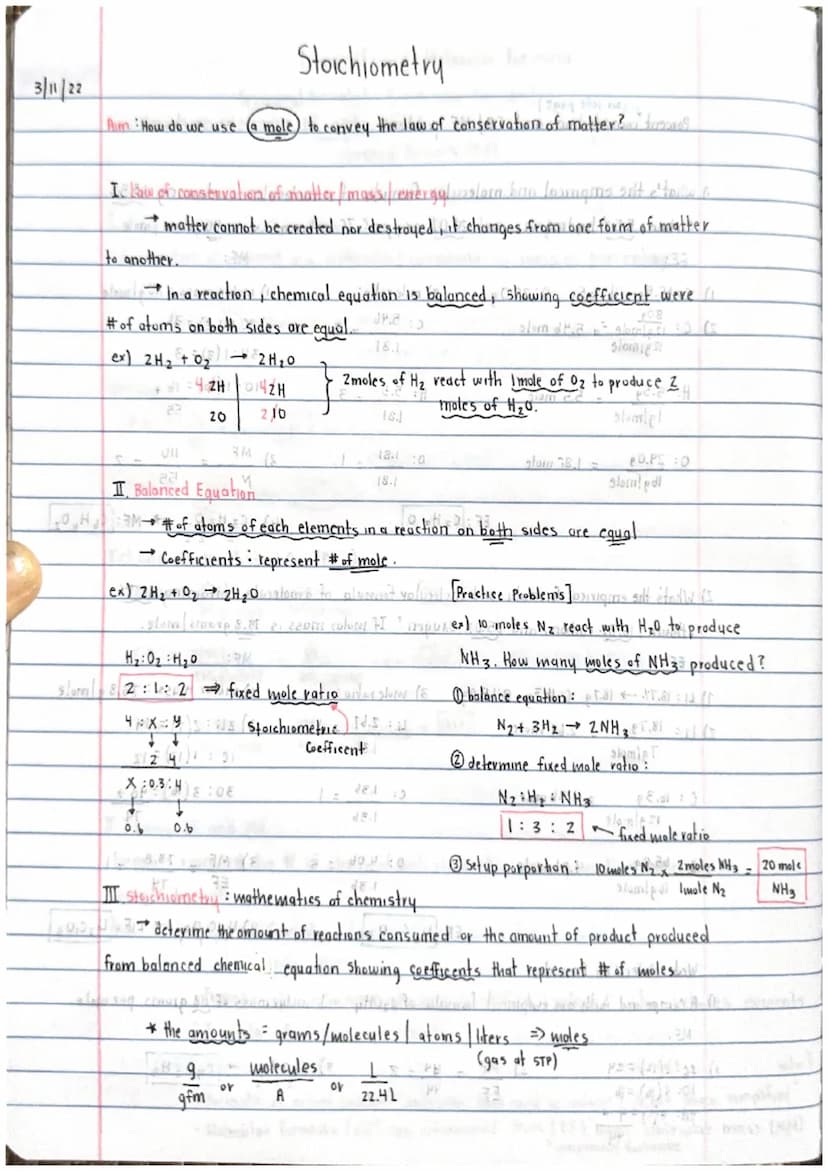 Stoichiometry
3/11/22
Aim : How do we use a mole to convey the law of conservation of matter?
I. law of conservation of matter / mass / energy
→ matter cannot be created nor destroyed, it changes from one form of matter
to another.
→ In a reaction, chemical equation is balanced, showing coefficient were
# of atoms on both sides are equal.
ex) 2H₂ + O₂ → 2H₂O
4 2H | 4 2H
2O | 2 1O
} 2moles of H₂ react with 1mole of O₂ to produce 2
moles of H₂O.
II. Balanced Equation
→ # of atoms of each elements in a reaction on both sides are equal
→ Coefficients : represent # of mole.
ex) 2H₂ + O₂ → 2H₂O
H₂:O₂:H₂O
2 : 1 : 2 ⇒ fixed mole ratio
4 : X : y Stoichiometric
↓ ↓ Coefficent
2 4
X : 0.3 : y
↓ ↓
0.6 0.6
[Practice Problems]
ex) 10 moles N₂ react with H₂O to produce
NH₃. How many moles of NH₃ produced?
① balance equation :
N₂ + 3H₂ → 2NH₃
② determine fixed mole ratio :
N₂ : H₂ : NH₃
1 : 3 : 2 ← fixed mole ratio
③ Setup porportion : 10 moles N₂ x 2moles NH₃ / 1mole N₂ = 20 mole NH₃
III Stoichiometry : mathematics of chemistry
→ deterime the amount of reactions consumed or the amount of product produced
from balanced chemical equation showing coefficents that represent # of moles
* the amounts = grams/molecules | atoms | liters ⇒ moles
(gas at STP)
g / gfm or molecules / A or L / 22.4L